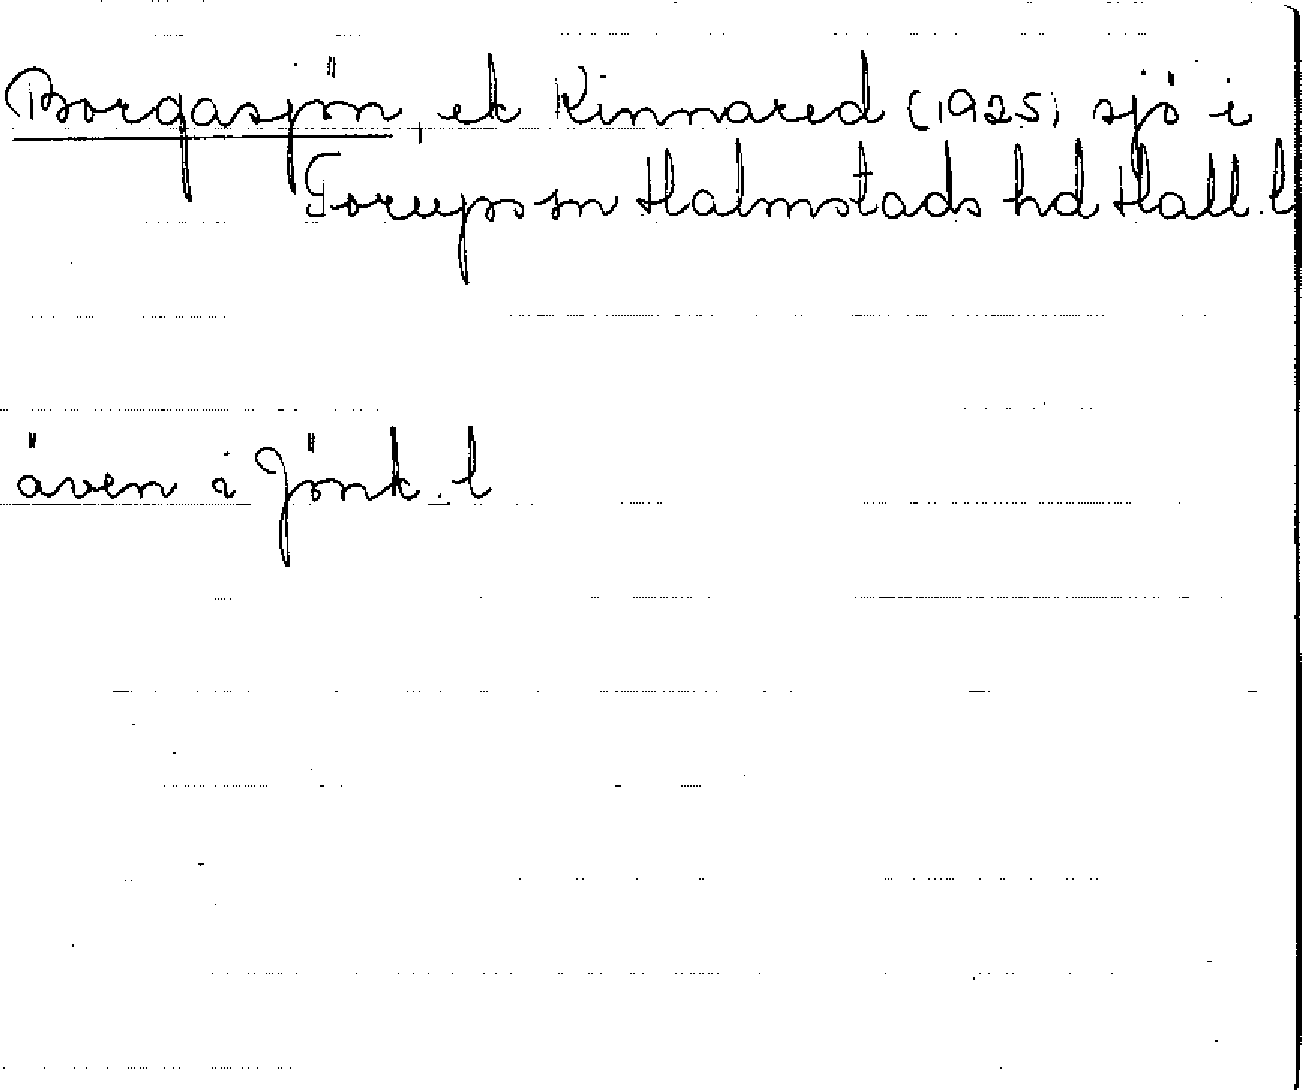 Borgasjön, ek Kinnared (1925) sjö i
Torups sn Halmstads hd Hall.l
även i Jönk.l